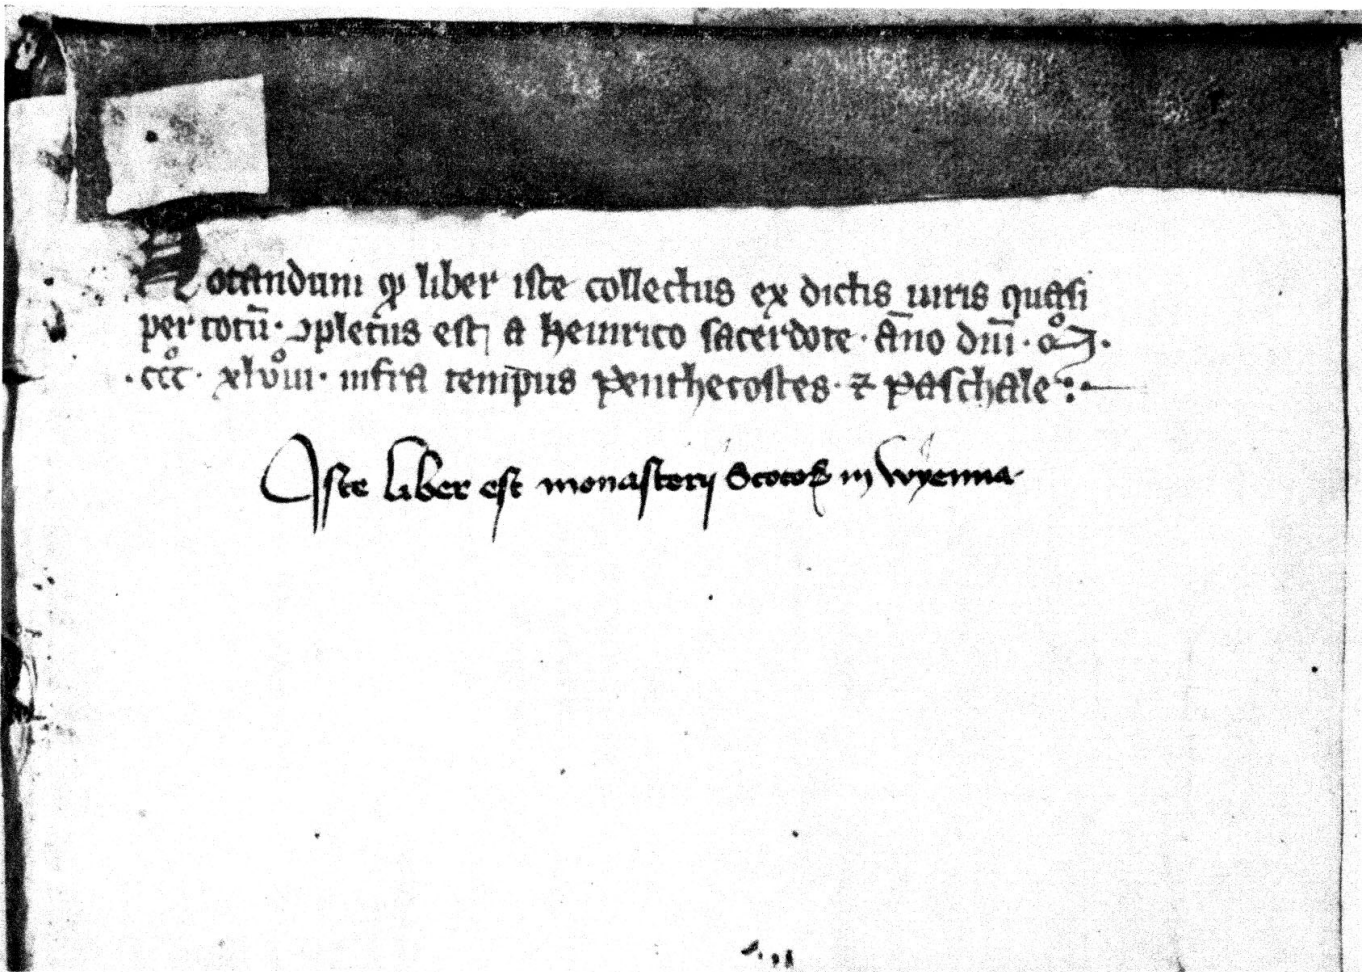 Notandum ꝙ liber iste collectus ex dictis iuris quasi
per totū · ꝯpletus est a heinrico sacerdote · āno dn̄i · Mͦ ·
· cccͦ · xlvͦiii · infra temp̄us Penthecostes · ⁊ Paschale :·
Iste liber est monasterij Scotoꝝ in Wyenna ·